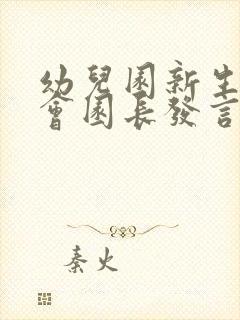 幼兒園新生
會園長發言
秦火